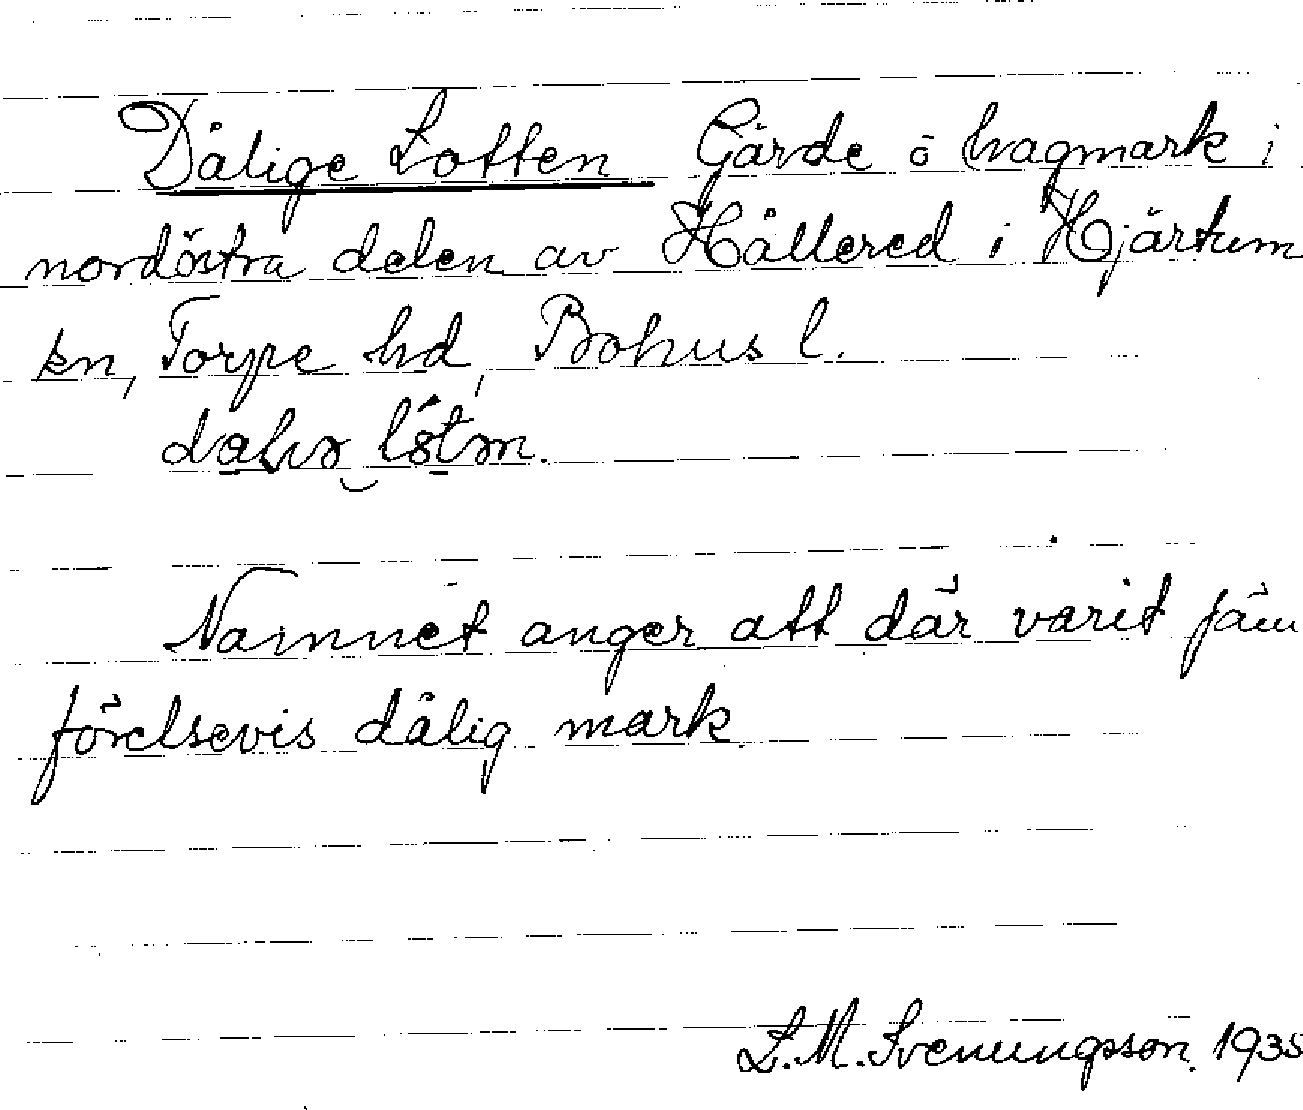 Dålige Lotten Gärde o hagmark i
nordöstra delen av Hållered i Hjärtum
kn, Torpe hd, Bohus l.
Namnet anger att där varit jäm
förelsevis dålig mark
L. M. Svenungsson. 1935